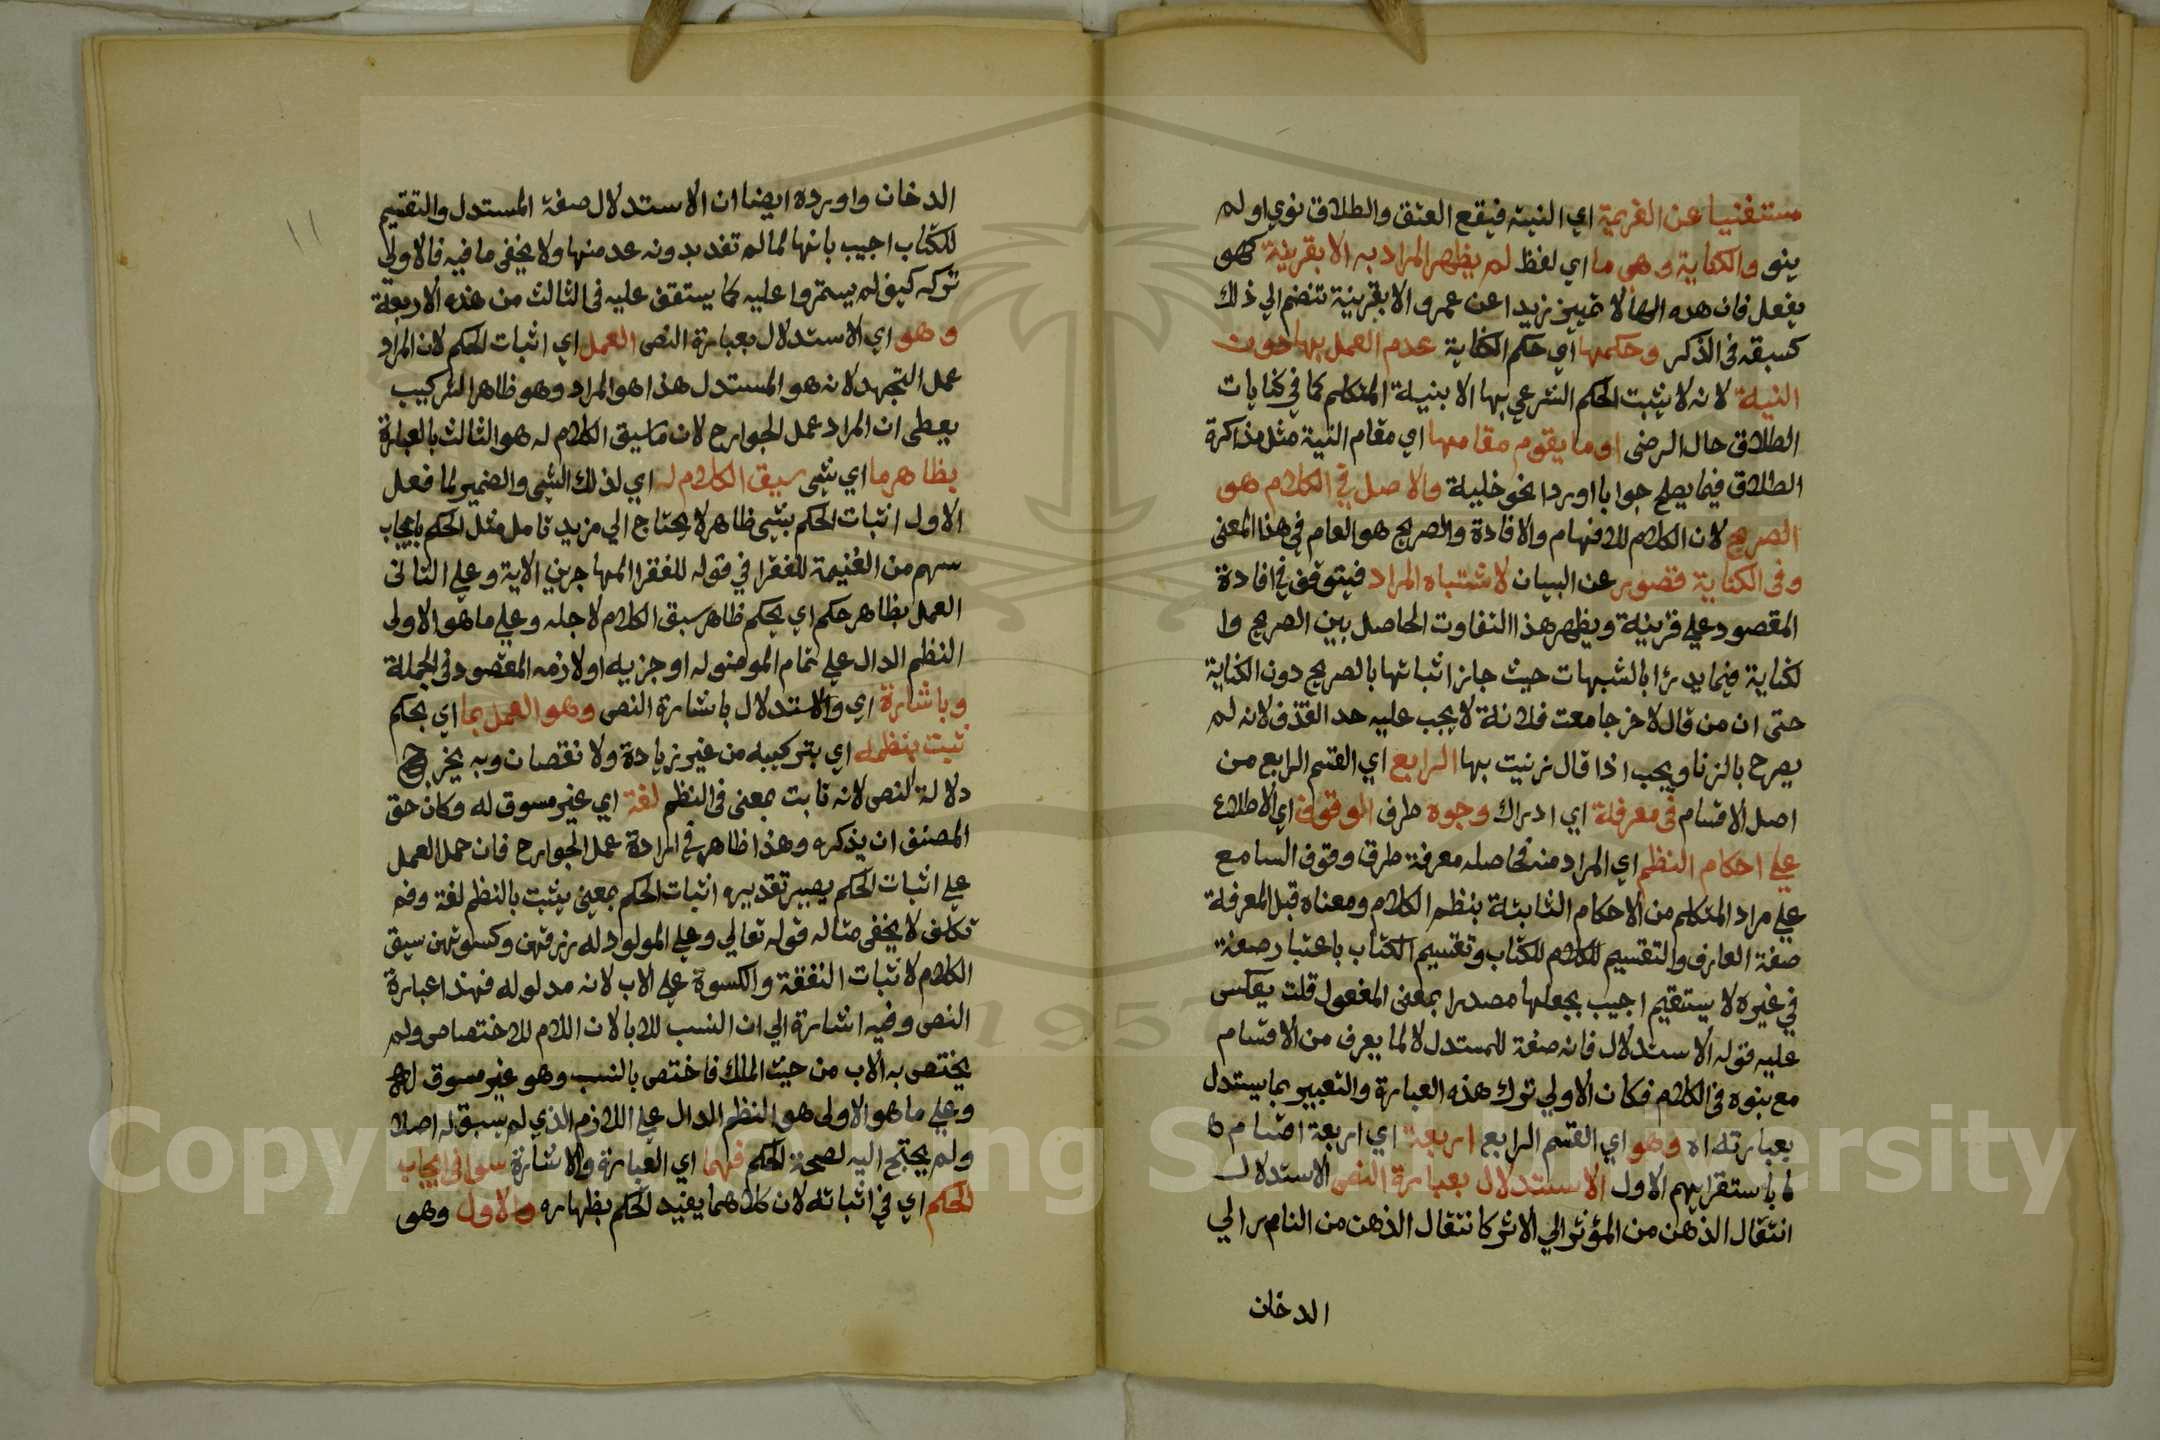 مستغنيا عن الغريمة اي النية فيقع العتق والطلاق نوي اولم
ينو والكناية وهي ما اي لفظ لم يظهر المراد به الا بقرينة كهو
يفعل فان هذه الها لا تميز زيدا عن عمرو الا بقرينة تنضم الي ذلك
كسبقه في الذكر وحكمها اي حكم الكناية عدم العمل بها دون
النية لانه لا يثبت الحكم الشرعي بها الا بنية المتكلم كما في كنايات
الطلاق حال الرضى او ما يقوم مقامها اي مقام النية مثل مذاكرة
الطلاق فيما يصلح جوابا اوردا نحو خلية والاصل في الكلام هو
الصريح لان الكلام للافهام والافادة والصريح هو العام في هذا المعنى
وفي الكناية قصور عن البيان لاشتباه المراد فيتوقف في افادة
المقصود علي قرينة ويظهر هذا التفاوت الحاصل بين الصريح وا
لكناية فيما يدرؤا بالشبهات حيث جاز اثباتها بالصريح دون الكناية
حتى ان من قال لاخر جامعت فلانة لا يجب عليه حد القذف لانه لم
يصرح بالزنا ويجب اذا قال زنيت بها الرابع اي القسم الرابع من
اصل الاقسام في معرفة اي ادراك وجوه طرف الوقوف اي الاطلاع
علي احكام النظم اي المراد منه فحاصله معرفة طرق وقوف السامع
علي مراد المتكلم من الاحكام الثابتة بنظم الكلام ومعناه قبل المعرفة
صفة العارف والتقسيم للكلام للكتاب وتقسيم الكتاب باعتبار صفة
في غيره لا يستقيم اجيب بجعلها مصدرا بمعنى المفعول قلت يعكس
عليه قوله الاستدلال فانه صفة للمستدل لا لما يعرف من الاقسام
مع بنوه في الكلام فكان الاولي ترك هذه العبارة والتعبير بما يستدل
بعبارته اه وهو اي القسم الرابع اربعة اي اربعة اقسام كا
لما باستقرايهم الاول الاستدلال بعبارة النص الاستدلال
انتقال الذهن من المؤثر الي الاثر كانتقال الذهن من النام الي
الدخان
الدخان واورده ايضا ان الاستدلال صفة المستدل والتقسيم
للكتاب اجيب بانها لما لم تفد بدونه عد منها ولا يخفى ما فيه فالاولي
تركه كيف لم يستمروا عليه كما يستقف عليه في الثالث من هذه الاربعة
وهو اي الاستدلال بعبارة النص العمل اي اثبات الحكم لان المراد
عمل المجتهد لانه هو المستدل هذا هو المراد وهو ظاهر التركيب
يعطي ان المراد عمل الجوارح لان ما سيق الكلام له هو الثالث بالعبارة
بظاهر ما اي شي سيق الكلام له اي لذلك الشي والضمير لما فعل
الاول اثبات الحكم بشي ظاهر لا يحتاج الي مزيد تامل مثل الحكم بايجاب
سهم من الغنيمة للفقرا في قوله للفقرا المهاجرين الاية وعلي الثاني
العمل بظاهر حكم اي بحكم ظاهر سبق الكلام لاجله وعلي ما هو الاولى
النظم الدال علي تمام الموضوله او جزيه او لازمه المقصود في الجملة
وباشارة اي والاستدلال باشارة النص وهو العمل بما اي بحكم
ثبت بنظمه اي بتركيبه من غير زيادة ولا نقصان وبه يخرج
دلالة النص لانه ثابت بمعنى في النظم لغة اي غير مسوق له وكان حق
المصنف ان يذكره وهذا ظاهر في ارادة عمل الجوارح فان حمل العمل
علي اثبات الحكم يصير تقديره اثبات الحكم بمعنى يثبت بالنظم لغة وفه
تكلف لا يخفى مثاله قوله تعالي وعلي المولود له رزقهن وكسوتهن سيق
الكلام لاثبات النفقة والكسوة علي الاب لانه مدلوله فهذا عبارة
النص وفيه اشارة الي ان النسب للابا لان اللام للاختصاص ولم
يختص به الاب من حيث الملك فاختص بالنسب وهو غير مسوق له
وعلي ما هو الاولى هو النظم الدال علي اللازم الذي لم يسبق له اصلا
ولم يحتج اليه لصحة الحكم فهما اي العبارة والاشارة سوا في ايجاب
الحكم اي في اثباته لان كلاهما يفيد الحكم بظهاره والاول وهو
١١
Copyright © King Saud University
1957